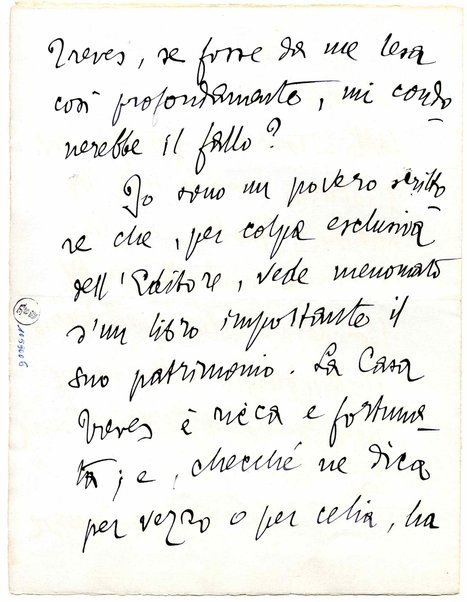 Treves, se fosse da me lesa
così profondamente, mi condo
nerebbe il fallo?
Io sono un povero scritto
re che, per colpa esclusiva
dell'Editore, vede menomato
d'un libro importante il
suo patrimonio. La Casa
Treves è ricca e fortuna
ta; e, checché ne dica
per vezzo o per celia, ha